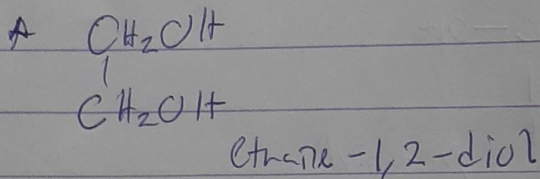 A CH₂OH
|
CH₂OH
ethane-1,2-diol